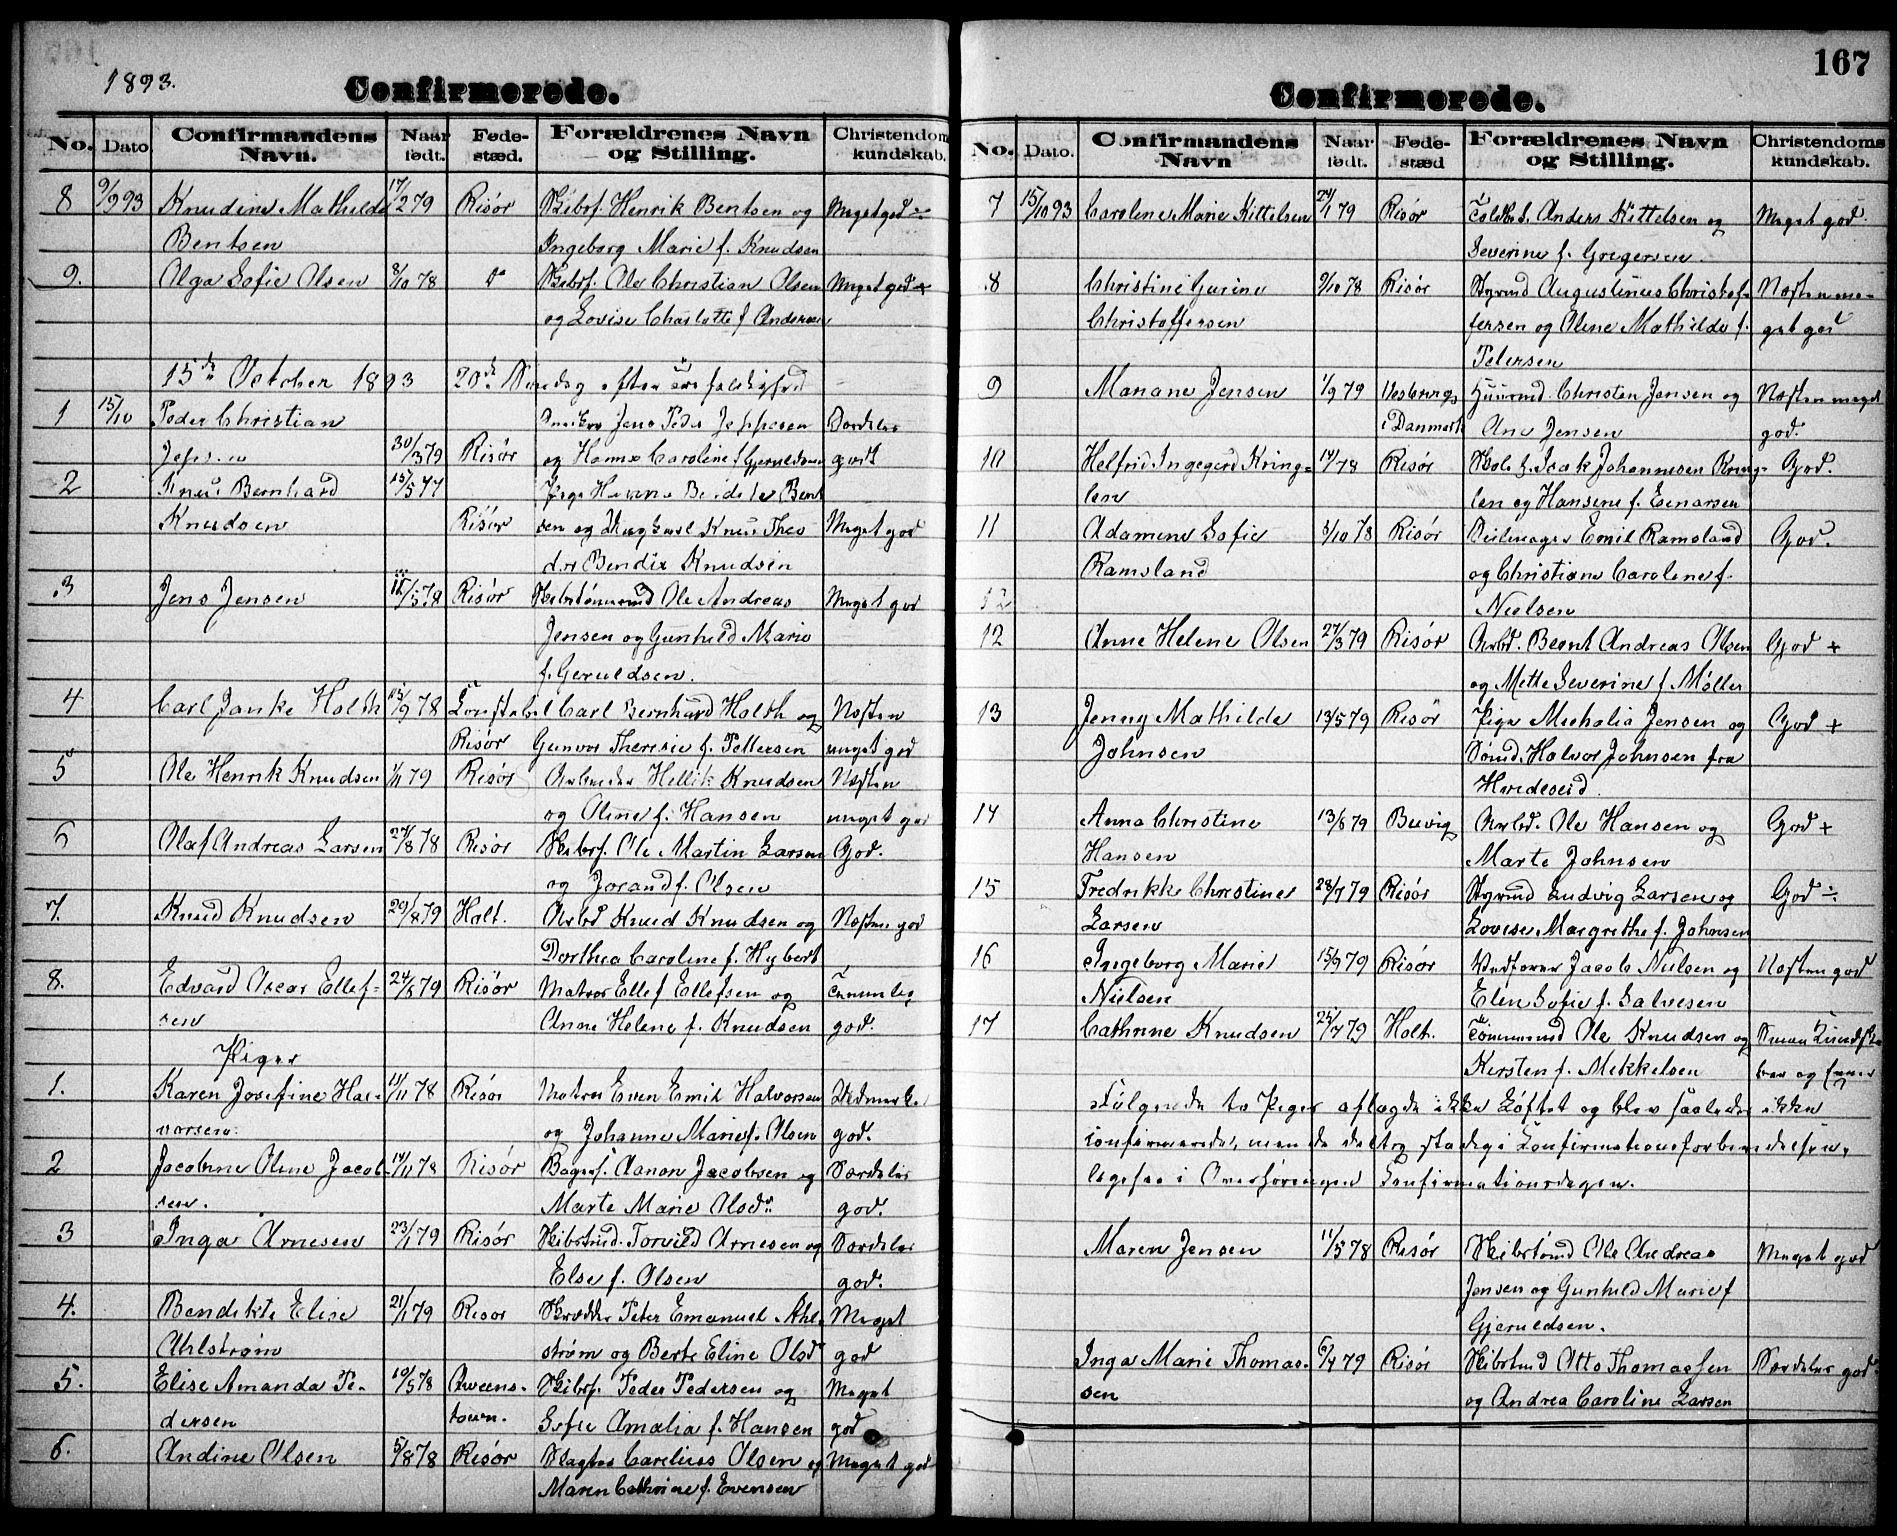 1893.
Confirmerede.
No. Dato. Confirmandens Navn. Naar født. Fødested. Forældrenes Navn og Stilling. Christendomskundskab.
8 9/9 93 Knudine Mathilde 17/2 79 Risør Skibsf. Henrik Bentsen og Meget god ÷
Bentsen Ingeborg Marie f. Knudsen
9. Olga Sofie Olsen 8/10 78 do Skibsf. Ole Christian Olsen Meget god +
og Lovise Charlotte f. Andersen
15de October 1893 20de Søndag efter
1 15/10 Peder Christian Jens Peder Jeppesen Særdeles
Jepsen 30/3 79 Risør og Hanna Caroline f. Gjeruldsen godt
2 Bernhard 15/5 77 Pige Hanna Bent
Knudsen Risør sen og Knud Theo Meget god
dor Bendix Knudsen
3 Jens Jensen 12/5 78 Risør Skibstømmermd Ole Andreas Meget god
Jensen og Gunhild Marie
f. Geruldsen.
4 Carl Janke Holth 15/9 78 Constabel Carl Bernhard Holth og Næsten
Risør Gunvor Theresie f. Pettersen meget god
5 Ole Henrik Knudsen 1/11 79 Risør Arbeider Hellik Knudsen Næsten
og Oline f. Hansen meget god
6 Olaf Andreas Larsen 27/8 78 Risør Skibsf. Ole Martin Larsen God.
og Jorand f. Olsen
7. Knud Knudsen 20/8 79 Holt. Arbd Knud Knudsen og Næsten god
Dorthea Caroline f. Hybert
8. Edvard Oscar Ellef- 24/5 79 Risør Matros Ellef Ellefsen og Temmelig
sen Anne Helene f. Knudsen god.
Piger
1. Karen Josefine Hal- 11/11 78 Risør Matros Even Emil Halvorsen Udmærket
vorsen. og Johanne Marie f. Olsen god.
2 Jacobine Oline Jacob- 14/11 78 Risør Bagerf. Aanon Jacobsen og Særdeles
sen. Marte Marie Olsdr god.
3 Inga Arnesen 23/1 79 Risør Skibstmd. Torvild Arnesen og Særdeles
Else f. Olsen god.
4. Bendikte Elise 21/1 79 Risør Skrædder Peter Emanuel Ahl- Meget
Ahlstrøm strøm og Berte Eline Olsdr god
5. Elise Amanda Pe- 10/5 78 Qweens- Skibsf. Peder Pedersen og Meget
dersen town. Sofie Amalia f. Hansen god
6. Andine Olsen 5/8 78 Risør Slagter Carelius Olsen og Meget god
Maren Cathrine f. Evensen
167
Confirmerede.
No. Dato. Confirmandens Navn Naar født. Fødested Forældrenes Navn og Stilling. Christendomskundskab.
7 15/10 93 Caroline Marie Kittelsen 24/1 79 Risør Anders Kittelsen og Meget god.
Severine f. Gregersen.
8 Christine Gurine 9/10 78 Risør Styrmd Augustinus Christof- Næsten me-
Christoffersen fersen og Oline Mathilde f. get god
Petersen
9 Mariane Jensen 1/9 79 i Danmark Christen Jensen og Næsten meget
Ane Jensen god.
10 Helfrid Ingegerd Kring- 14/7 78 Risør Isak Johannesen Kring- God.
len len og Hansine f. Evensen
11 Adamine Sofie 3/10 78 Risør Seilmager Emil Ramsland God.
Ramsland og Christiane Caroline f.
12 Nielsen
12 Anne Helene Olsen 27/3 79 Risør Arbd. Bernt Andreas Olsen God +
og Mette Severine f. Møller
13 Jenny Mathilde 13/5 79 Risør Pige Michalia Jensen og God +
Johnsen Sømd. Halvor Johnsen fra
Hvideseid.
14 Anna Christine 13/8 79 Buvig Arbd. Ole Hansen og God +
Hansen Marte Johnsen
15 Fredrikke Christine 28/7 79 Risør Styrmd Ludvig Larsen og God ÷
Larsen Lovise Margrethe f. Johnsen
16 Ingeborg Marie 15/9 79 Risør Jacob Nielsen og Næsten god
Nielsen Elen Sofie f. Salvesen
17 Cathrine Knudsen 25/7 79 Holt. Tømmermd Ole Knudsen og
Kirsten f. Mikkelsen
Følgende to Piger aflagde ikke Løftet og blev saaledes ikke
confirmerede, men de deltog stadig i Confirmationsforberedelsen,
ligesaa i Overhøringen Confirmationsdagen.
Maren Jensen 11/5 78 Risør Skibstømd Ole Andreas Meget god
Jensen og Gunhild Marie f
Gjeruldsen.
Inga Marie Thomas- 6/4 79 Risør Skibstmd Otto Thomassen Særdeles god.
sen og Andrea Caroline Larsen